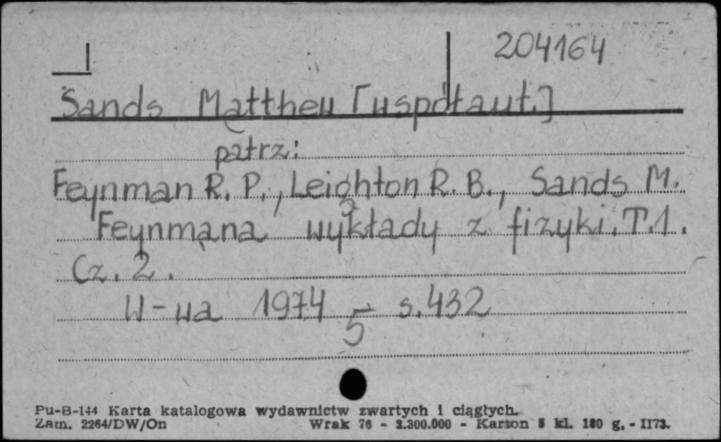 204164
Sands Mattheu [uspółaut.]
patrz:
Feynman R. P., Leighton R. B., Sands M.
Feynmana wykłady z fizyki. T.1.
Cz. 2.
W-wa 1974 s. 432
5
Pu-B-144 Karta katalogowa wydawnictw zwartych i ciągłych.
Zam. 2264/DW/On Wrak 76 - 2.300.000 - Karton 5 kl. 180 g. - II73.